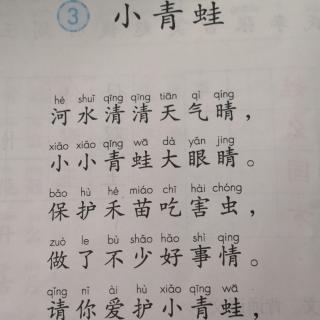 3 小青蛙
hé shuǐ qīng qīng tiān qì qíng
河水清清天气晴，
xiǎo xiǎo qīng wā dà yǎn jing
小小青蛙大眼睛。
bǎo hù hé miáo chī hài chóng
保护禾苗吃害虫，
zuò le bù shǎo hǎo shì qing
做了不少好事情。
qǐng nǐ ài hù xiǎo qīng wā
请你爱护小青蛙，